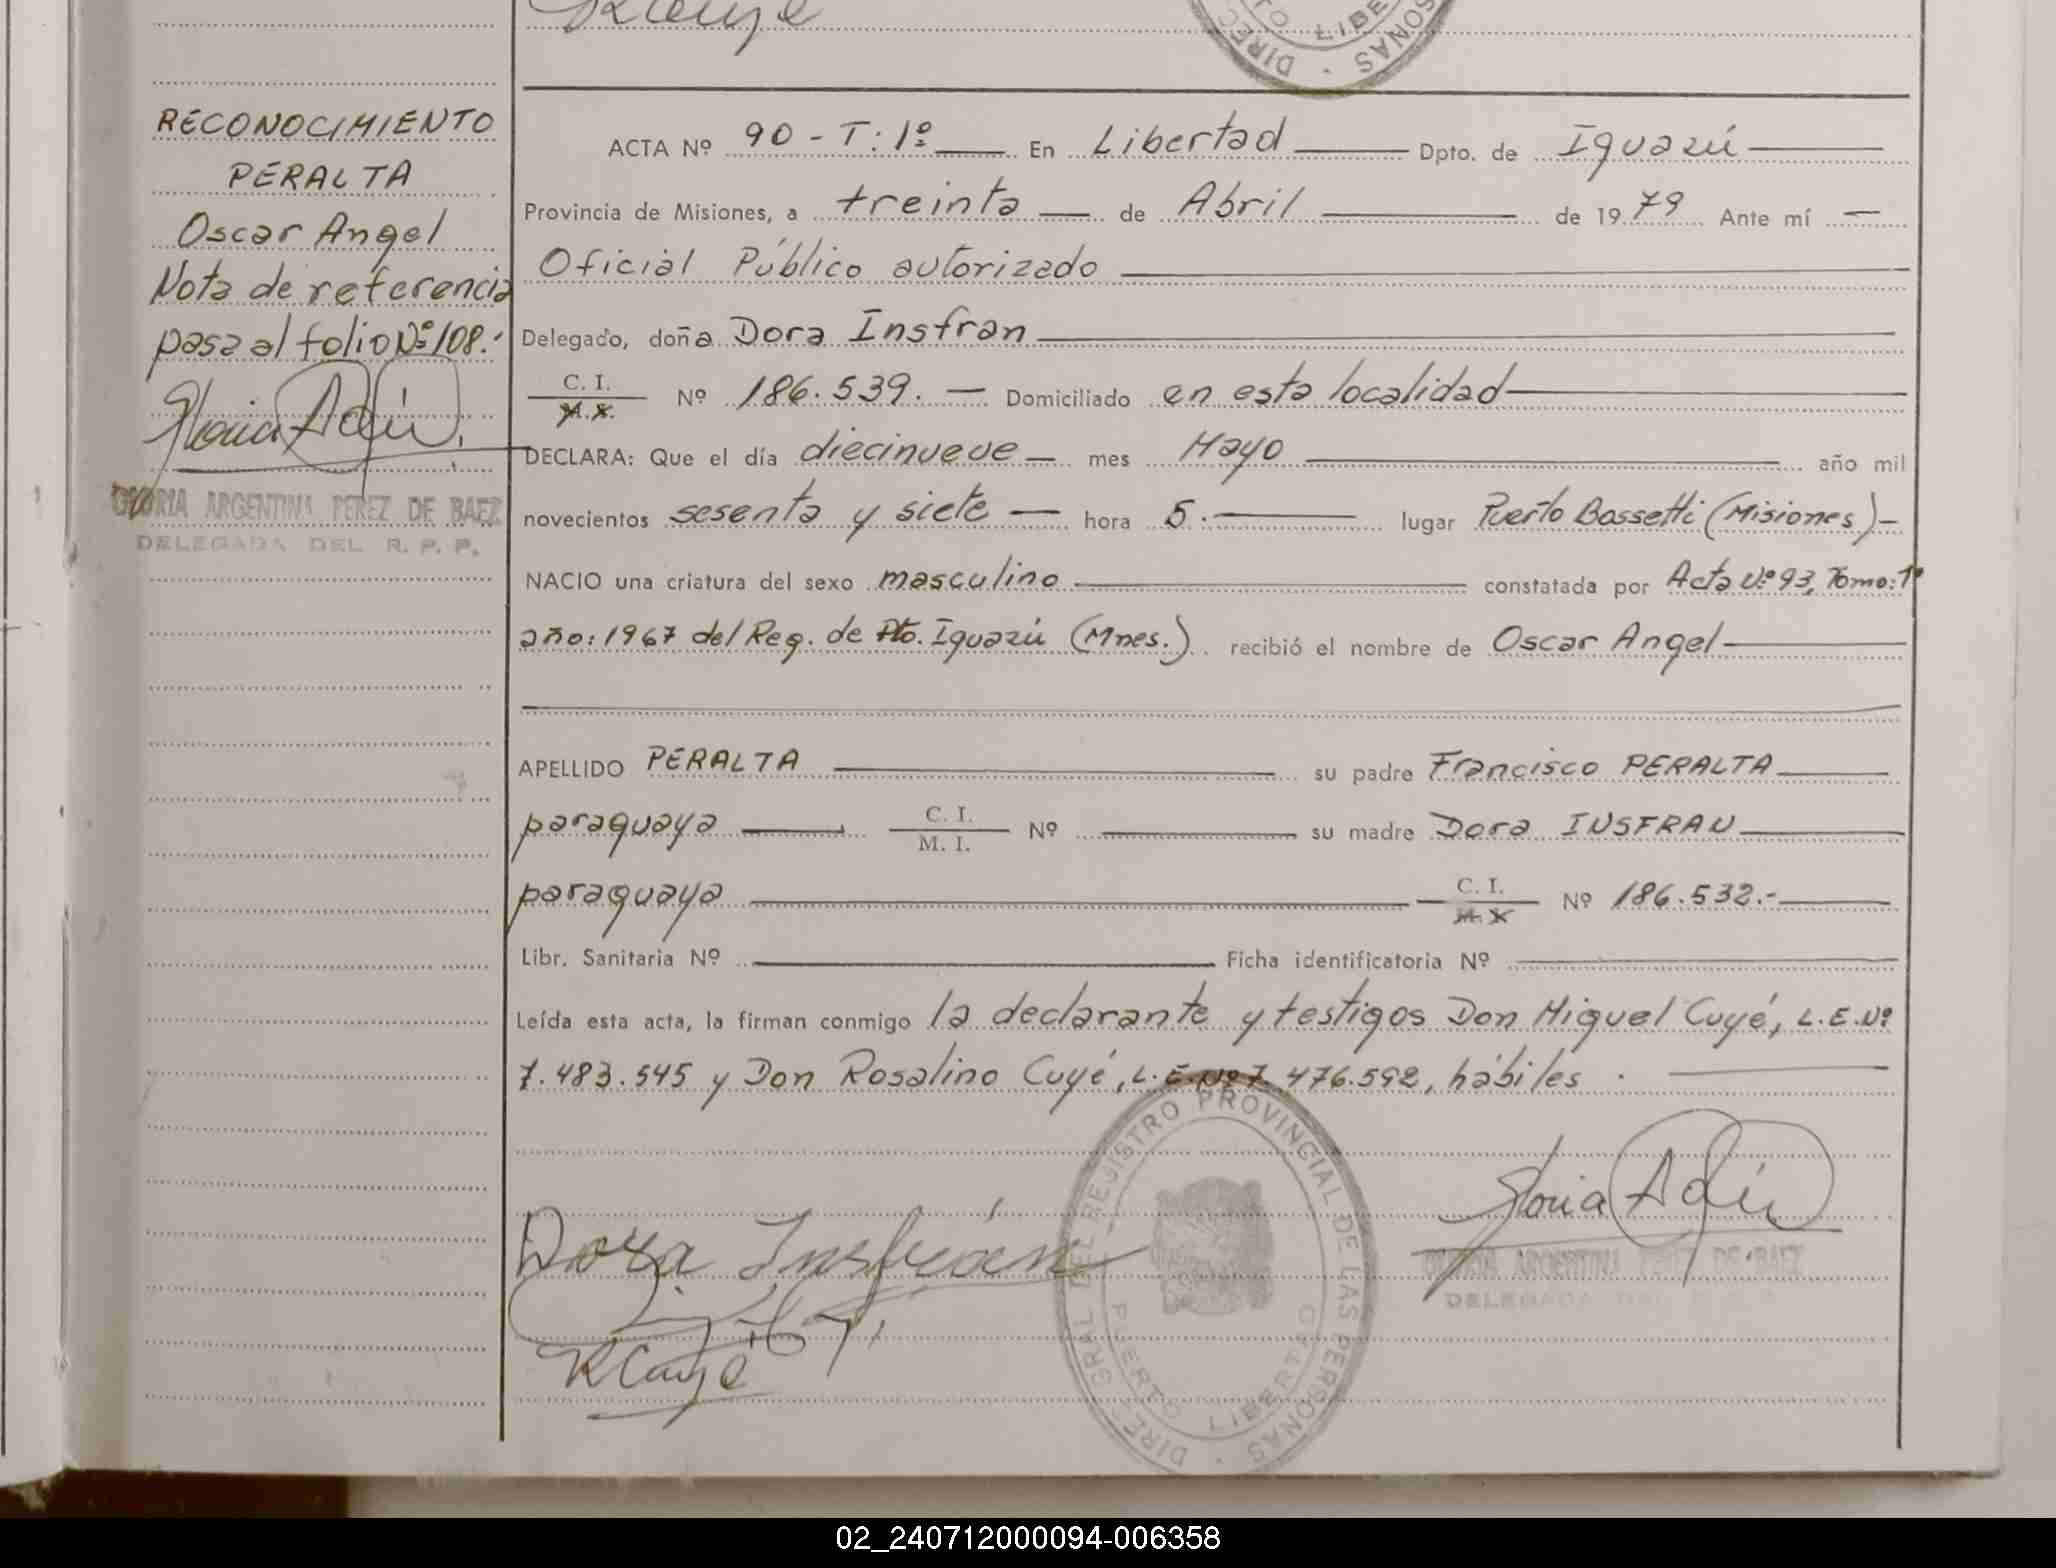 RECONOCIMIENTO
PERALTA
Oscar Angel
Nota de referencia
pasa al folio Nº 108.-
GLORIA ARGENTINA PEREZ DE BAEZ
DELEGADA DEL R. P. P.
ACTA Nº 90 - T: 1º En Libertad Dpto. de Iguazú
Provincia de Misiones, a treinta de Abril de 1979 Ante mí
Oficial Público autorizado
Delegado, doña Dora Insfran
C. I. / M. I. Nº 186.539. Domiciliado en esta localidad
DECLARA: Que el día diecinueve mes Mayo año mil
novecientos sesenta y siete hora 5. lugar Puerto Bossetti (Misiones)
NACIO una criatura del sexo masculino constatada por Acta Nº 93, Tomo: 1º
año: 1967 del Reg. de Pto. Iguazú (Mnes.) recibió el nombre de Oscar Angel
APELLIDO PERALTA su padre Francisco PERALTA
paraguaya C. I. / M. I. Nº su madre Dora INSFRAN
paraguaya C. I. / M. I. Nº 186.532.-
Libr. Sanitaria Nº Ficha identificatoria Nº
Leída esta acta, la firman conmigo la declarante y testigos Don Miguel Cuyé, L.E.Nº
7.483.545 y Don Rosalino Cuyé, L.E.Nº 7.476.592, hábiles.
Dora Insfrán
RCuyé
DIREC. GRAL DEL REJISTRO PROVINCIAL DE LAS PERSONAS
PUERTO LIBERTAD
GLORIA ARGENTINA PEREZ DE BAEZ
DELEGADA DEL
02_240712000094-006358